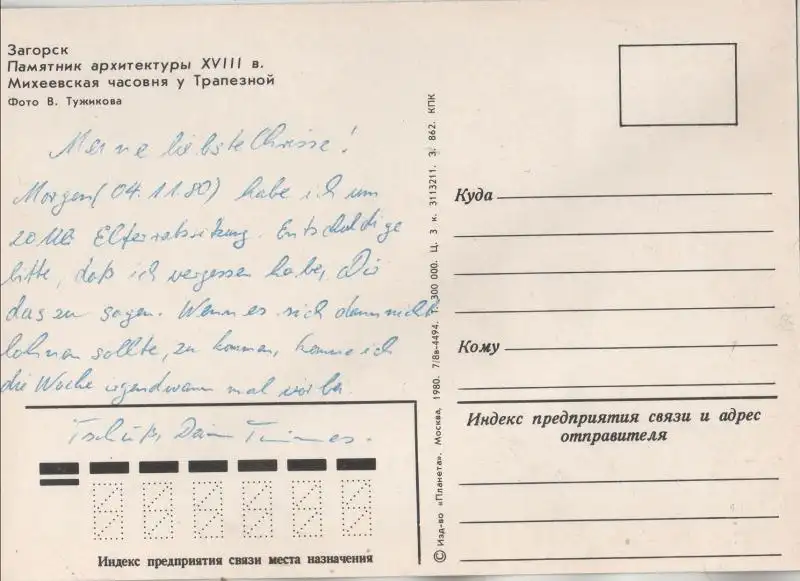 Загорск
Памятник архитектуры XVIII в.
Михеевская часовня у Трапезной
Фото В. Тужикова
Meine liebste Chrisse!
Morgen (04.11.80) habe ich um
20 Uhr Elferratssitzung. Entschuldige
bitte, daß ich vergessen habe, Dir
das zu sagen. Wenn es sich dann nicht
lohnen sollte, zu kommen, komme ich
die Woche irgendwann mal vorbei.
Tschüß, Dein
Индекс предприятия связи места назначения
© Изд-во «Планета». Москва, 1980. 7/8в-4494. Т. 300 000. Ц. 3 к. 3113211. З. 862. КПК
Куда
Кому
Индекс предприятия связи и адрес
отправителя